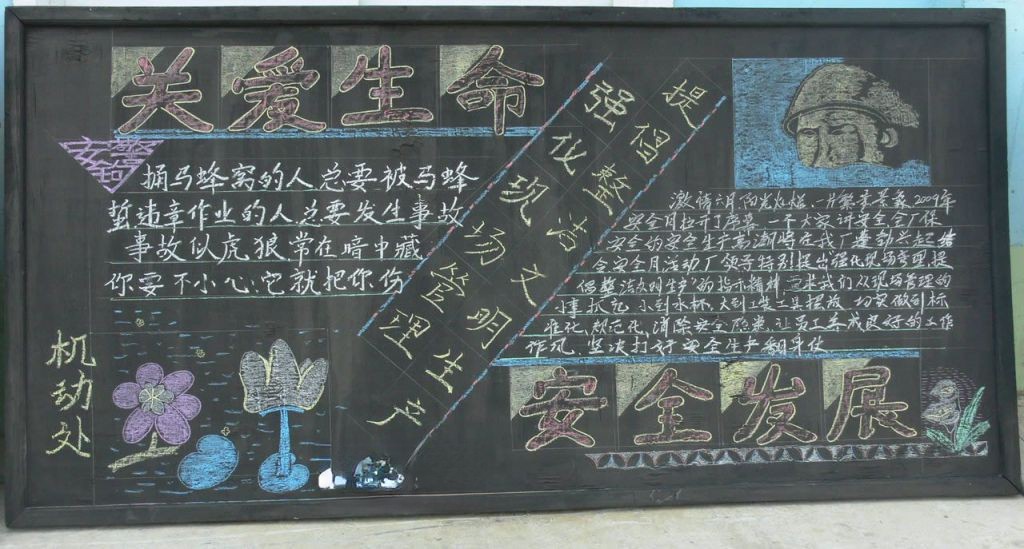 关爱生命
安警钟
捅马蜂窝的人总要被马蜂
蜇违章作业的人总要发生事故
事故似虎狼常在暗中藏
你要不小心它就把你伤
机动处
强化现场管理
提倡整洁文明生产
激情六月阳光灿烂,一片繁荣景象2009年
安全月拉开了序幕,一个大家讲安全会
安全的安全生产高潮将在我厂蓬勃兴起结
合安全月活动厂领导特别提出强化现场管理,提
倡整洁文明生产"的指示精神,要求我们从现场管理的
小事抓起,小到水杯,大到工具摆放,切实做到标
准化,规范化,消除安全隐患,让员工养成良好的工作
作风,坚决打好安全生产翻身仗
安全发展